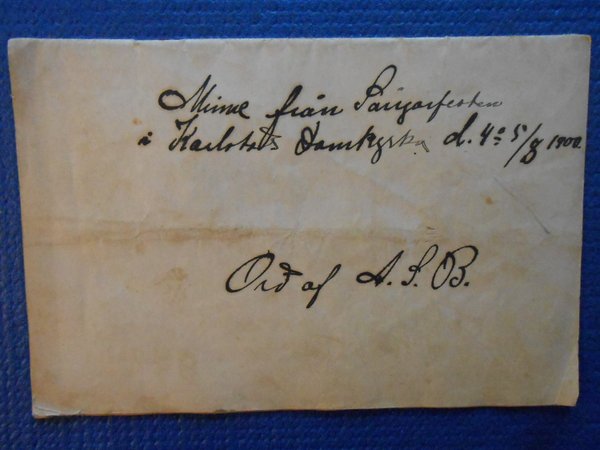 Minne från Sångarfesten
i Karlstads Domkyrka d. 4 o 5/8 1900
Ord af A. S. B.